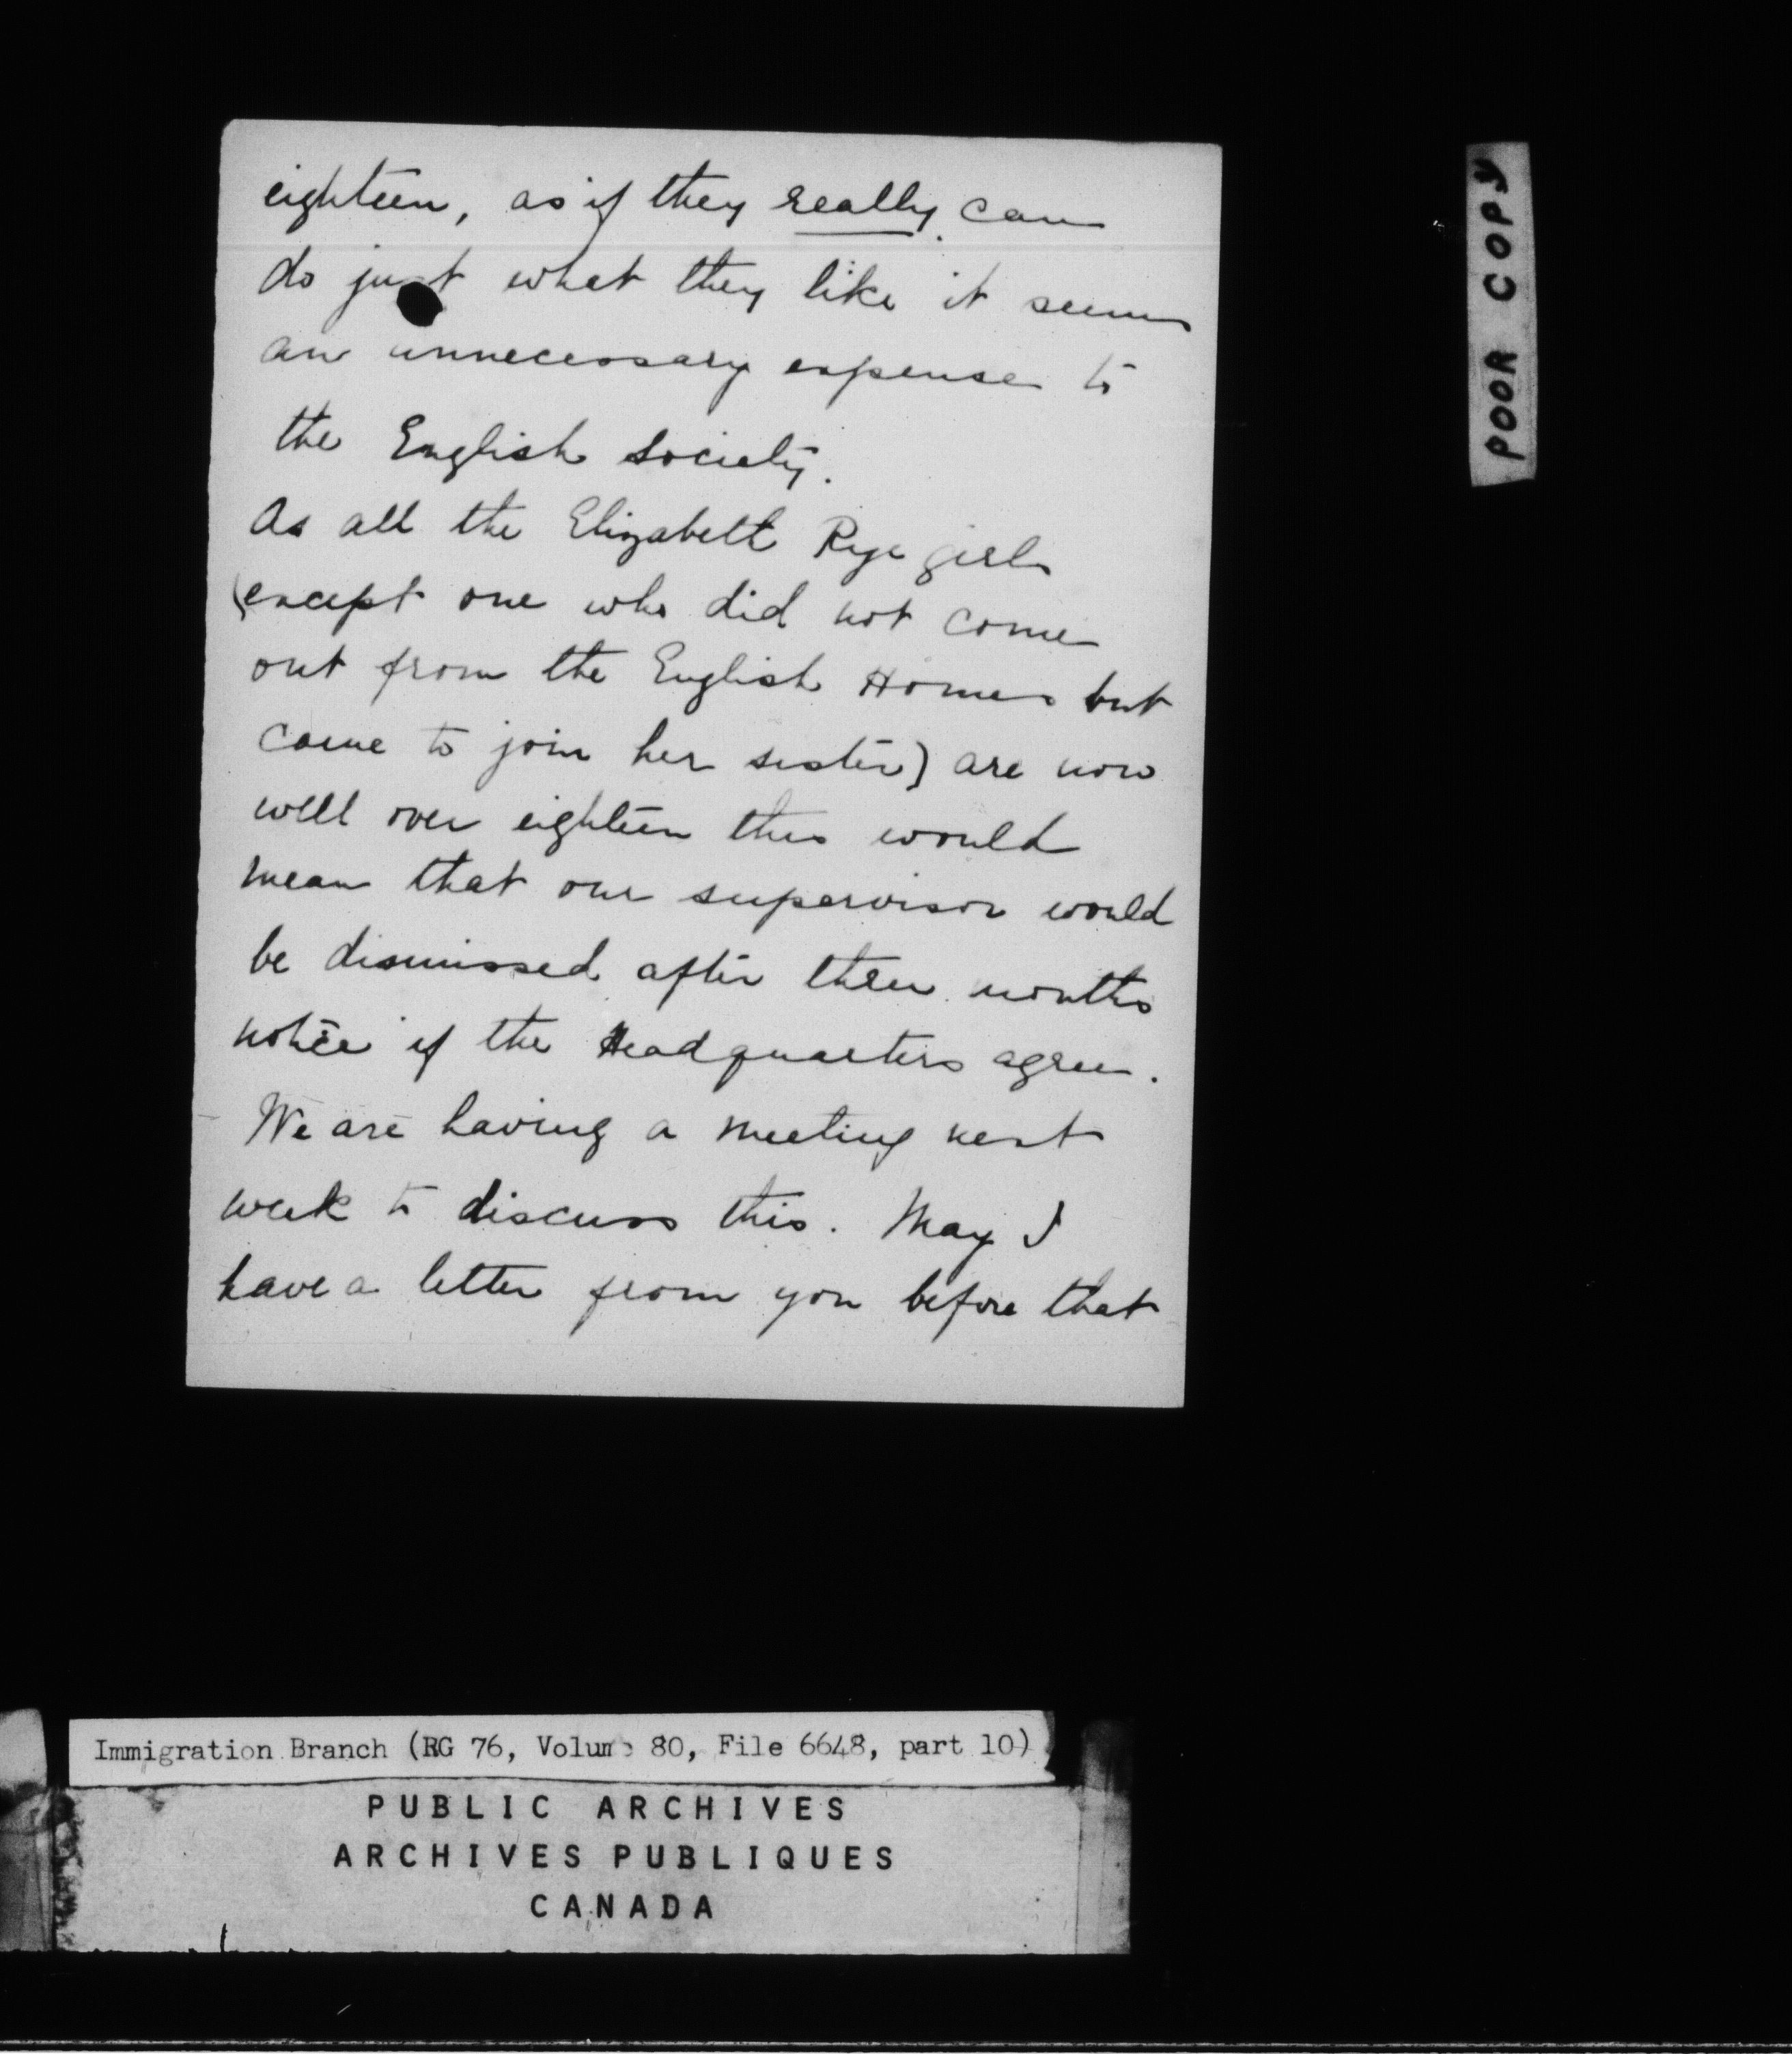 eighteen, as if they really can
do just what they like it seems
an unnecessary expense to
the English Society.
As all the Elizabeth Rye girls
(except one who did not come
out from the English Homes but
came to join her sister) are now
well over eighteen this would
mean that our supervisor would
be dismissed after three months
notice if the Headquarters agree.
We are having a meeting next
week to discuss this. May I
have a letter from you before that
POOR COPY
Immigration Branch (RG 76, Volume 80, File 6648, part 10)
PUBLIC ARCHIVES
ARCHIVES PUBLIQUES
CANADA